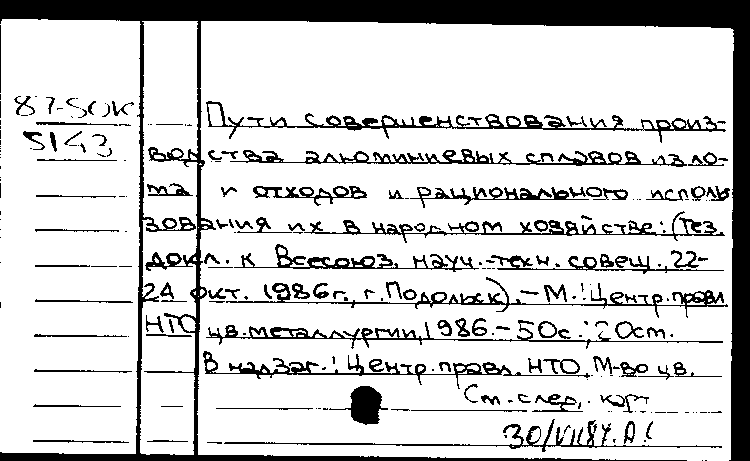 87-50К
5143
Пути совершенствования произ-
водства алюминиевых сплавов из ло-
ма и отходов и рационального исполь
зования их в народном хозяйстве: (Тез.
докл. к Всесоюз. науч.-техн. совещ., 22-
24 окт. 1986 г., г. Подольск). - М.: Центр. правл.
НТО цв. металлургии, 1986. - 50 с.; 20 см.
В надзаг.: Центр. правл. НТО, М-во цв.
См. след. карт